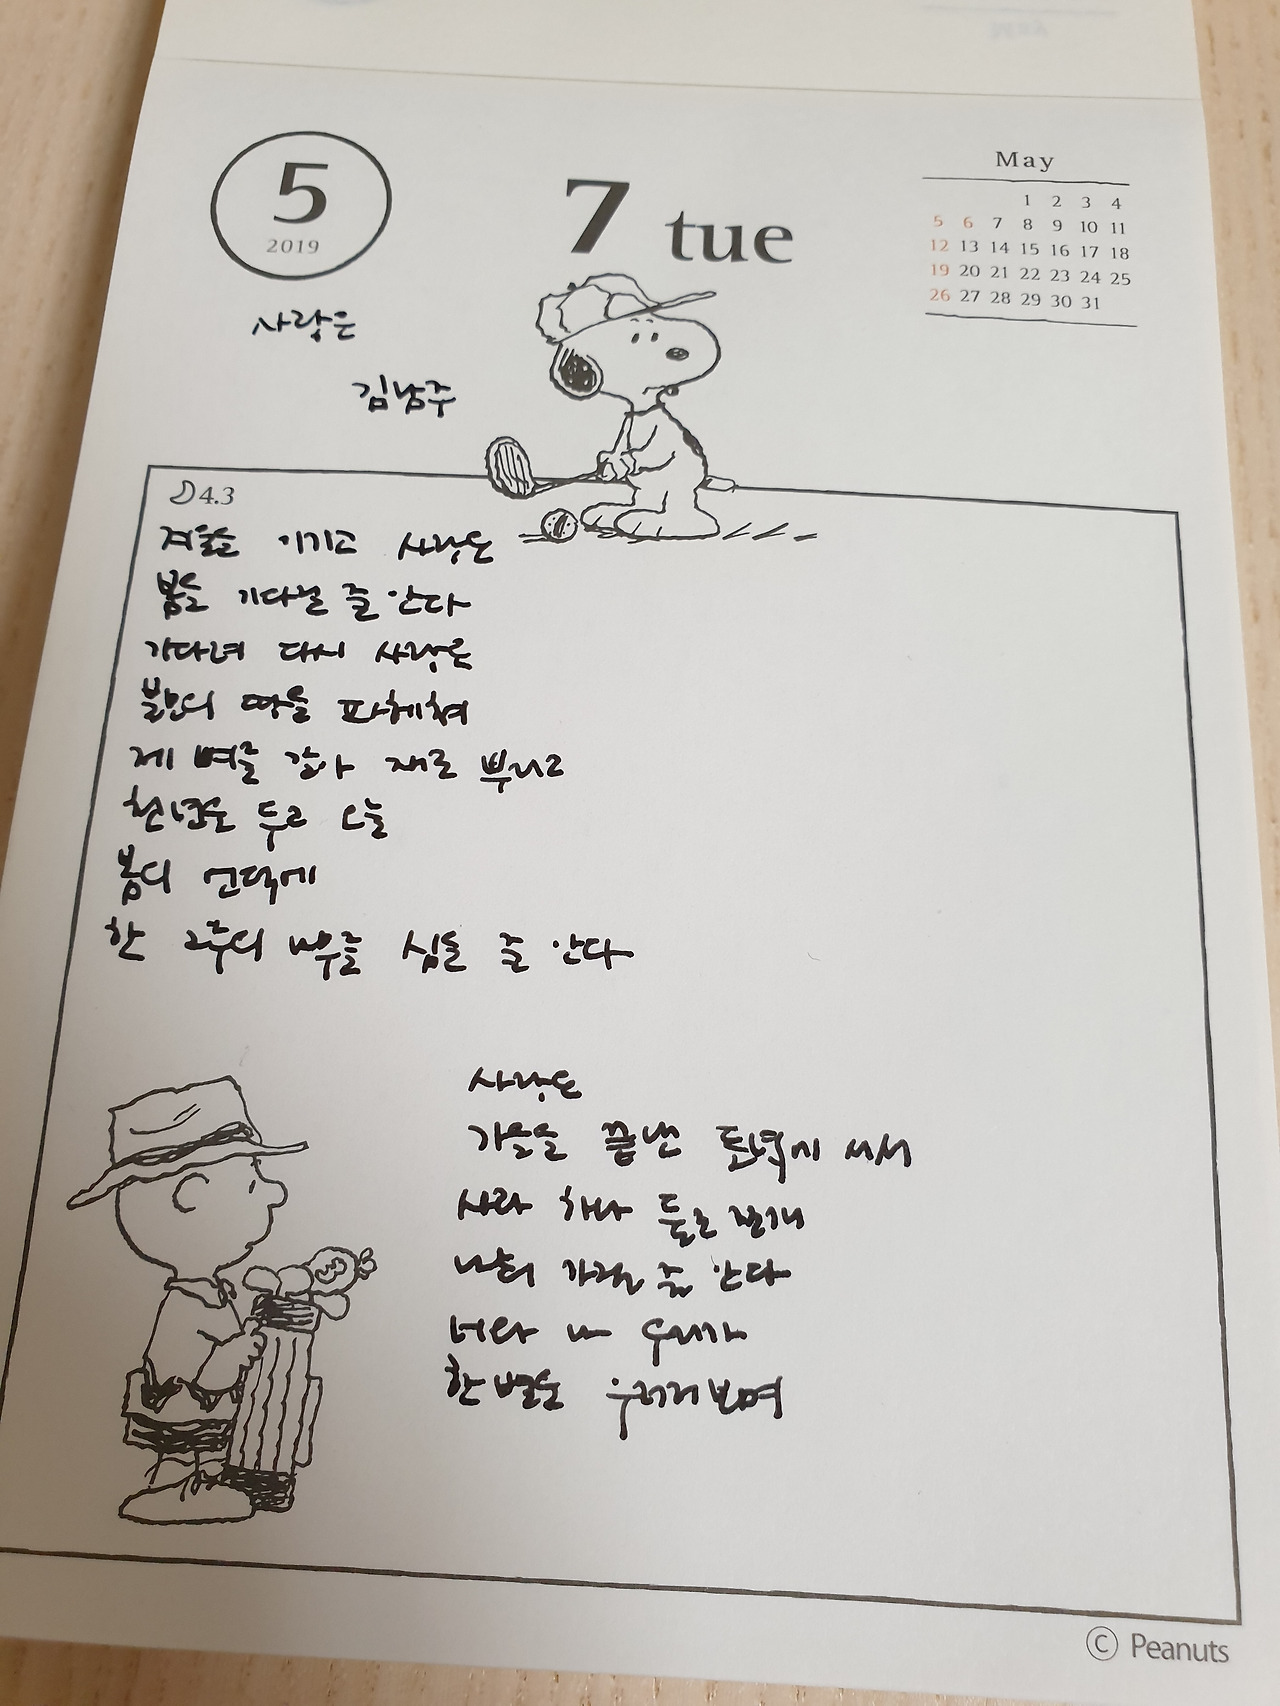 5
2019
7 tue
May
1 2 3 4
5 6 7 8 9 10 11
12 13 14 15 16 17 18
19 20 21 22 23 24 25
26 27 28 29 30 31
사랑은
김남주
4.3
겨울을 이기고 사랑은
봄을 기다릴 줄 안다
기다려 다시 사랑은
불모의 땅을 파헤쳐
제 뼈를 갈아 재로 뿌리고
천년을 두고 오늘
봄의 언덕에
한 그루의 나무를 심을 줄 안다
사랑은
가을을 끝낸 들녘에 서서
사과 하나 둘로 쪼개
나눠 가질 줄 안다
너와 나 우리가
한 별을 우러러보며
© Peanuts